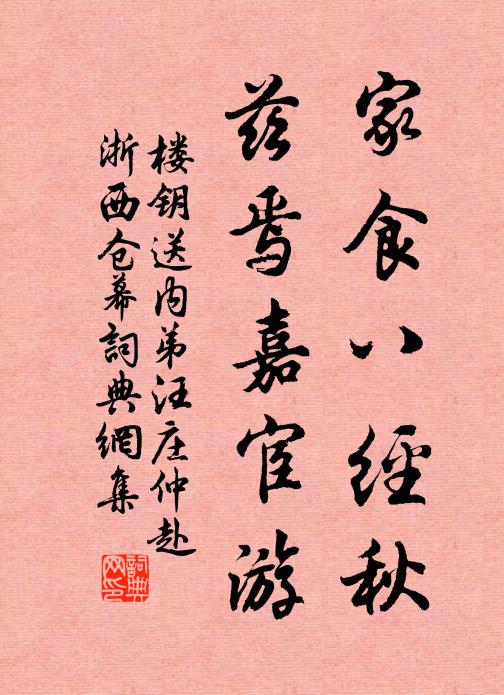 家食八經秋
茲焉嘉宦游
楼钥送内弟汪庄仲赴
浙西仓幕詞典網集
詞典網印